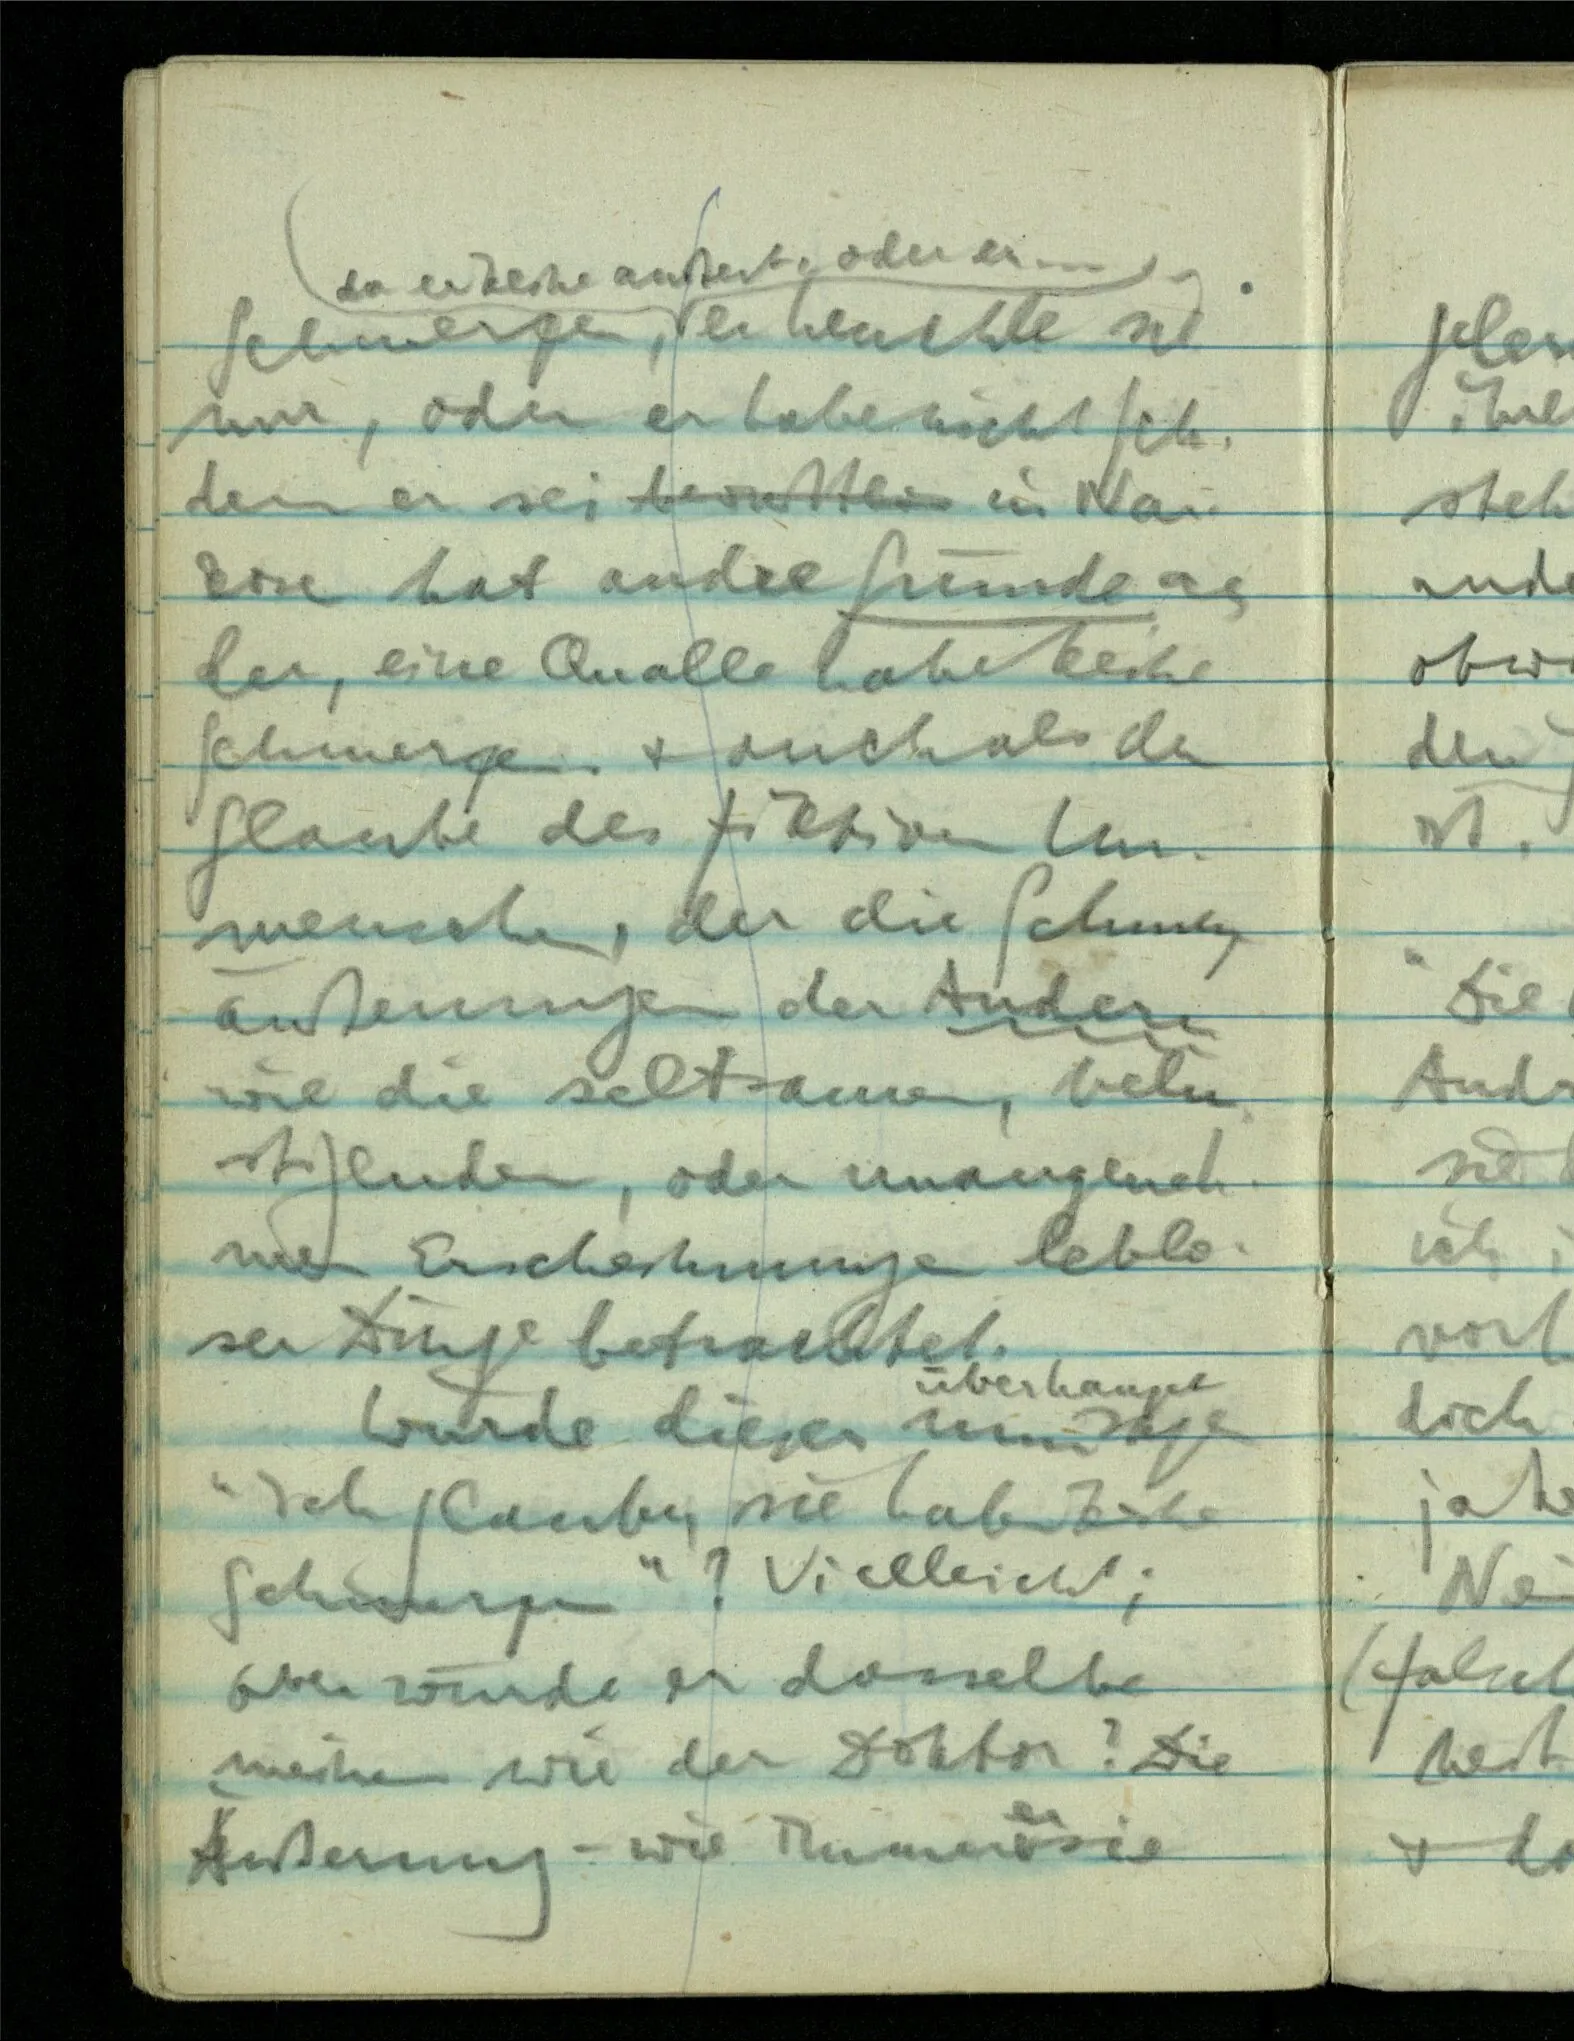 da er keine äußert, oder er ...
Schmerzen, er heuchle sie
nur, oder er habe nicht Sch.
denn er sei bewußtlos in Nar-
kose hat andre Gründe als
der, eine Qualle habe keine
Schmerzen. + auch als der
Glaube des fiktiven Un-
menschen, der die Schmerz
äußerungen der Andern
wie die seltsamen, belu-
stigenden, oder unangeneh-
men Erscheinungen leblo-
ser Dinge betrachtet.
überhaupt
Würde dieser nun sagen
"Ich glaube, sie haben keine
Schmerzen"? Vielleicht;
aber würde er dasselbe
meinen wie der Doktor? Die
er
Äußerung – wie sie
jeden
ihre
steh
ande
obwo
den
ist.
"Die
Andr
sie
ich
vorh
dich
ja ke
Nei
(falsch
heit
+ da